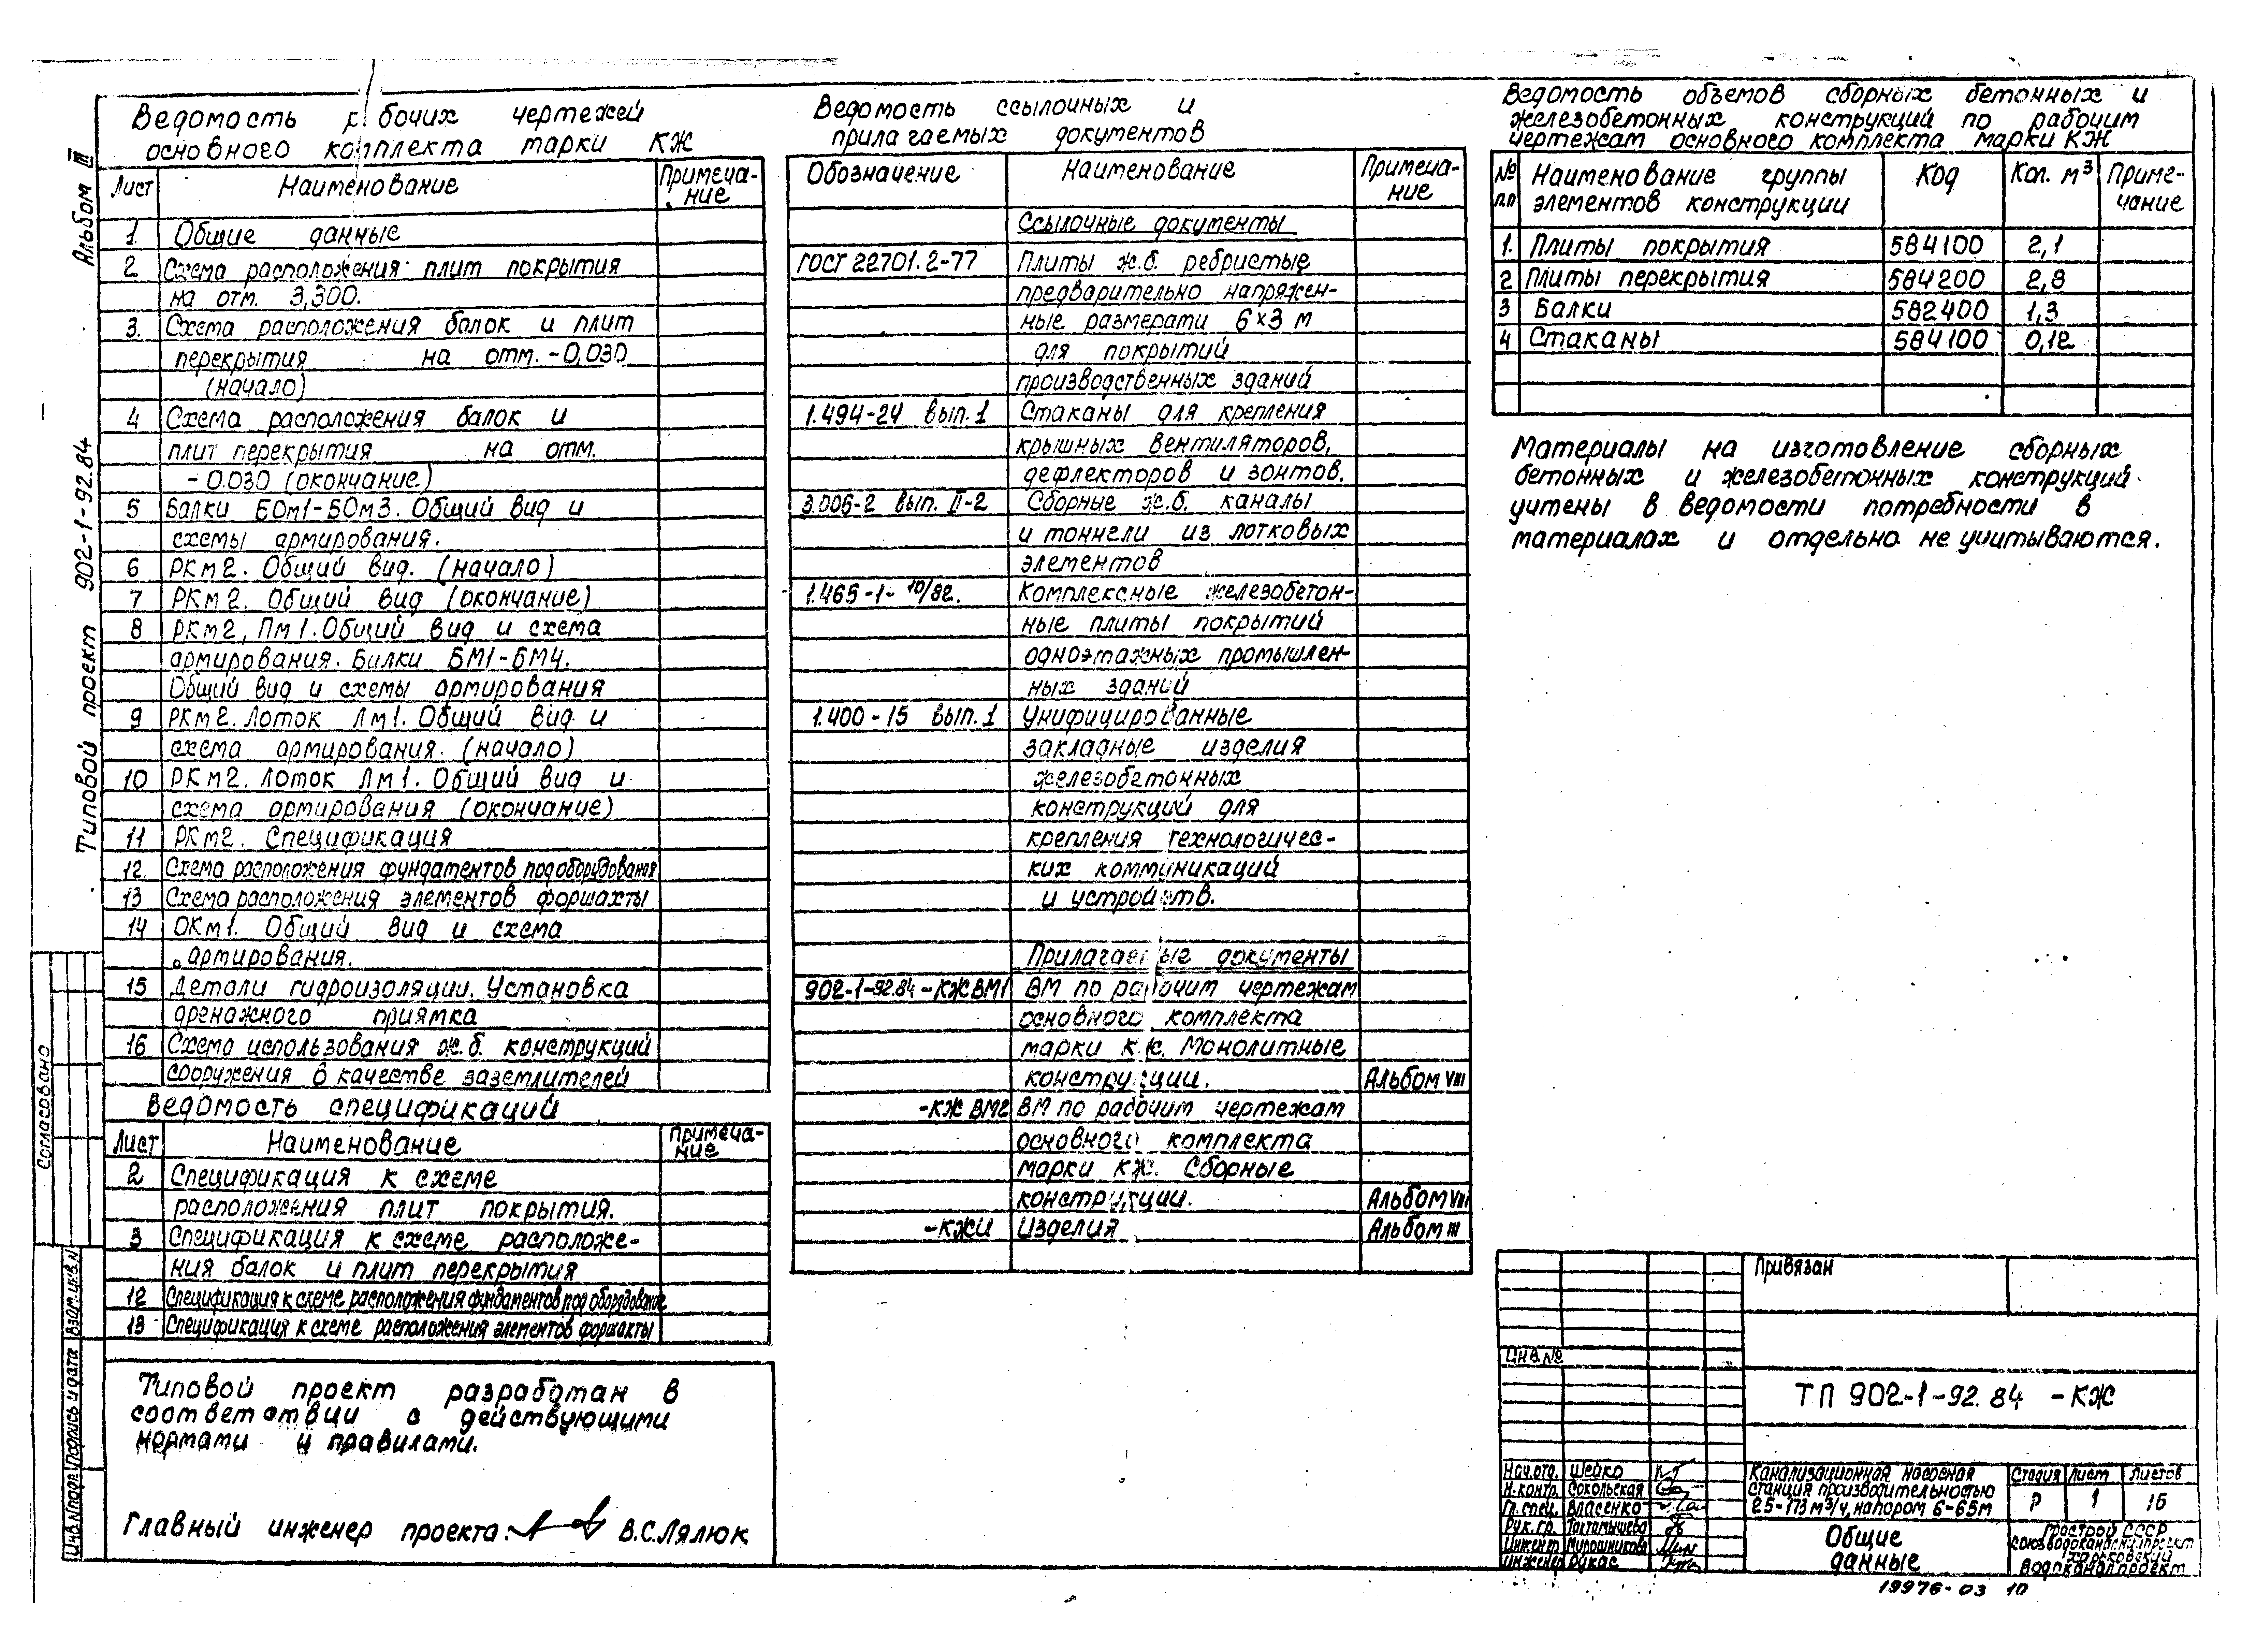 Альбом III
Типовой проект 902-1-92.84
Ведомость рабочих чертежей
основного комплекта марки КЖ
Лист Наименование Примеча-
ние
1. Общие данные
2 Схема расположения плит покрытия
на отм. 3,300.
3. Схема расположения балок и плит
перекрытия на отм. -0,030
(начало)
4 Схема расположения балок и
плит перекрытия на отм.
-0.030 (окончание)
5 Балки БОм1-БОм3. Общий вид и
схемы армирования.
6 РКм2. Общий вид. (начало)
7 РКм2. Общий вид (окончание)
8 РКм2, Пм1. Общий вид и схема
армирования. Балки БМ1-БМ4.
Общий вид и схемы армирования
9 РКм2. Лоток Лм1. Общий вид и
схема армирования. (начало)
10 РКм2. Лоток Лм1. Общий вид и
схема армирования (окончание)
11 РКм2. Спецификация
12. Схема расположения фундаментов под оборудование
13 Схема расположения элементов форшахты
14 ОКм1. Общий вид и схема
армирования.
15 Детали гидроизоляции. Установка
дренажного приямка
16 Схема использования ж.б. конструкций
сооружения в качестве заземлителей
Ведомость спецификаций
Лист Наименование Примеча-
ние
2 Спецификация к схеме
расположения плит покрытия.
3 Спецификация к схеме расположе-
ния балок и плит перекрытия
12 Спецификация к схеме расположения фундаментов под оборудование
13 Спецификация к схеме расположения элементов форшахты
Типовой проект разработан в
соответствии с действующими
нормами и правилами.
Главный инженер проекта: В.С.Лялюк
Ведомость ссылочных и
прилагаемых документов
Обозначение Наименование Примеча-
ние
Ссылочные документы
ГОСТ 22701.2-77 Плиты ж.б. ребристые
предварительно напряжен-
ные размерами 6×3 м
для покрытий
производственных зданий
1.494-24 вып.1 Стаканы для крепления
крышных вентиляторов,
дефлекторов и зонтов.
3.006-2 вып. II-2 Сборные ж.б. каналы
и тоннели из лотковых
элементов
1.465-1-10/82. Комплексные железобетон-
ные плиты покрытий
одноэтажных промышлен-
ных зданий
1.400-15 вып.1 Унифицированные
закладные изделия
железобетонных
конструкций для
крепления технологичес-
ких коммуникаций
и устройств.
Прилагаемые документы
902-1-92.84-КЖ ВМ1 ВМ по рабочим чертежам
основного комплекта
марки КЖ. Монолитные
конструкции. Альбом VIII
-КЖ ВМ2 ВМ по рабочим чертежам
основного комплекта
марки КЖ. Сборные
конструкции. Альбом VIII
-КЖИ Изделия Альбом III
Ведомость объемов сборных бетонных и
железобетонных конструкций по рабочим
чертежам основного комплекта марки КЖ
№ п.п Наименование группы Код Кол. м³ Приме-
элементов конструкции чание
1. Плиты покрытия 584100 2,1
2 Плиты перекрытия 584200 2,8
3 Балки 582400 1,3
4 Стаканы 584100 0,12
Материалы на изготовление сборных
бетонных и железобетонных конструкций
учтены в ведомости потребности в
материалах и отдельно не учитываются.
Привязан
Инв.№
ТП 902-1-92.84 -КЖ
Нач.отд. Шейко
Н.контр. Сокольская
Гл.спец. Власенко
Рук.гр. Тактамышева
Инженер Мирошникова
инженер Рукас
Канализационная насосная
станция производительностью
25-173 м³/ч, напором 6-65м
Стадия Лист Листов
Р 1 16
Общие
данные
Госстрой СССР
Союзводоканалниипроект
Харьковский
Водоканалпроект
19976-03 10
Согласовано
Инв.№ подл. Подпись и дата Взам.инв.№